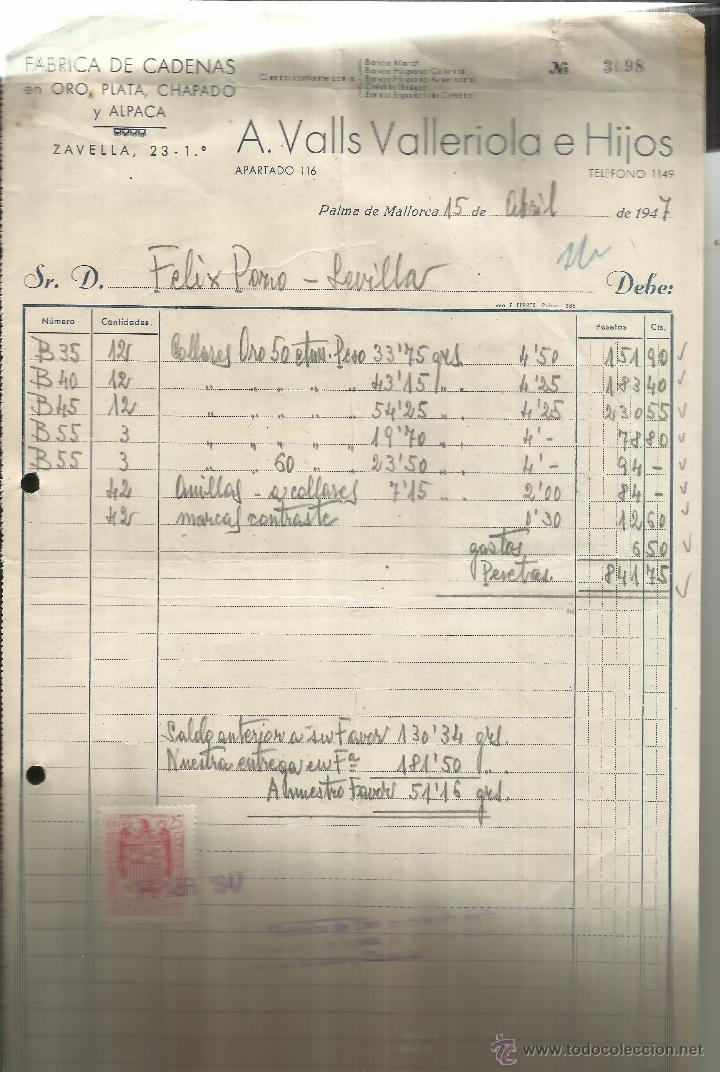 FABRICA DE CADENAS
en ORO, PLATA, CHAPADO
y ALPACA
ZAVELLA, 23-1.º
Cuenta corriente con
Banca March
Banco Hispano Colonial
Banco Hispano Americano
Crédito Balear
Banco Español de Crédito
Nº 3098
A. Valls Valleriola e Hijos
APARTADO 116
TELEFONO 1149
Palma de Mallorca 15 de Abril de 1947
Sr. D. Felix Pozo - Sevilla Debe:
Número Cantidades Pesetas Cts.
B35 12 Collares Oro 50 ctms. Peso 33'75 grs. 4'50 151 90
B40 12 " " " " 43'15 " . 4'25 183 40
B45 12 " " " " 54'25 " . 4'25 230 55
B55 3 " " " " 19'70 " . 4'- 78 80
B55 3 " 60 " " 23'50 " . 4'- 94 -
42 Anillas - a collares 7'15 " . 2'00 84 -
42 marcas contraste 0'30 12 60
gastos 6 50
Pesetas 841 75
Saldo anterior a su Favor 130'34 grs.
Nuestra entrega en Fª 181'50 " .
A nuestro Favor 51'16 grs.
25
1947
todocoleccion.net